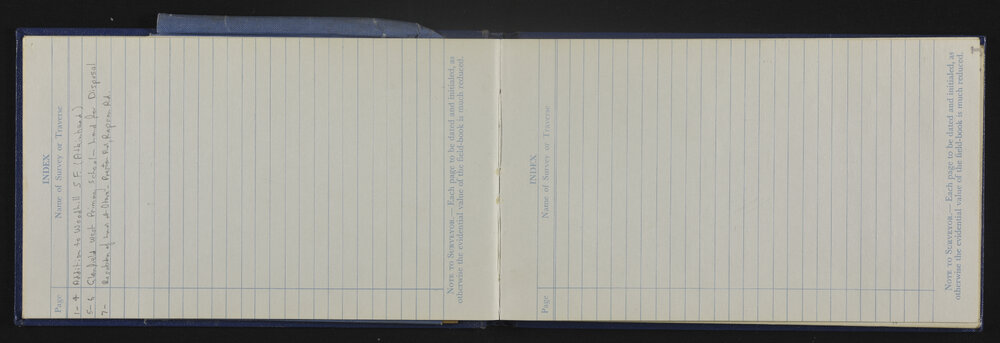 INDEX
Page Name of Survey or Traverse
1-4 Addition to Woodhill S.F. (Parkinhead)
5-6 Glenfield West Primary School - Land for Disposal
7- of Land at - Rd, Rd.
NOTE TO SURVEYOR.— Each page to be dated and initialed, as
otherwise the evidential value of the field-book is much reduced.
INDEX
Page Name of Survey or Traverse
NOTE TO SURVEYOR.— Each page to be dated and initialed, as
otherwise the evidential value of the field-book is much reduced.